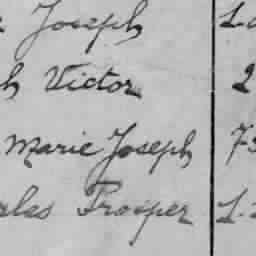 Joseph
h Victor 2
Marie Joseph 73
les Prosper L.